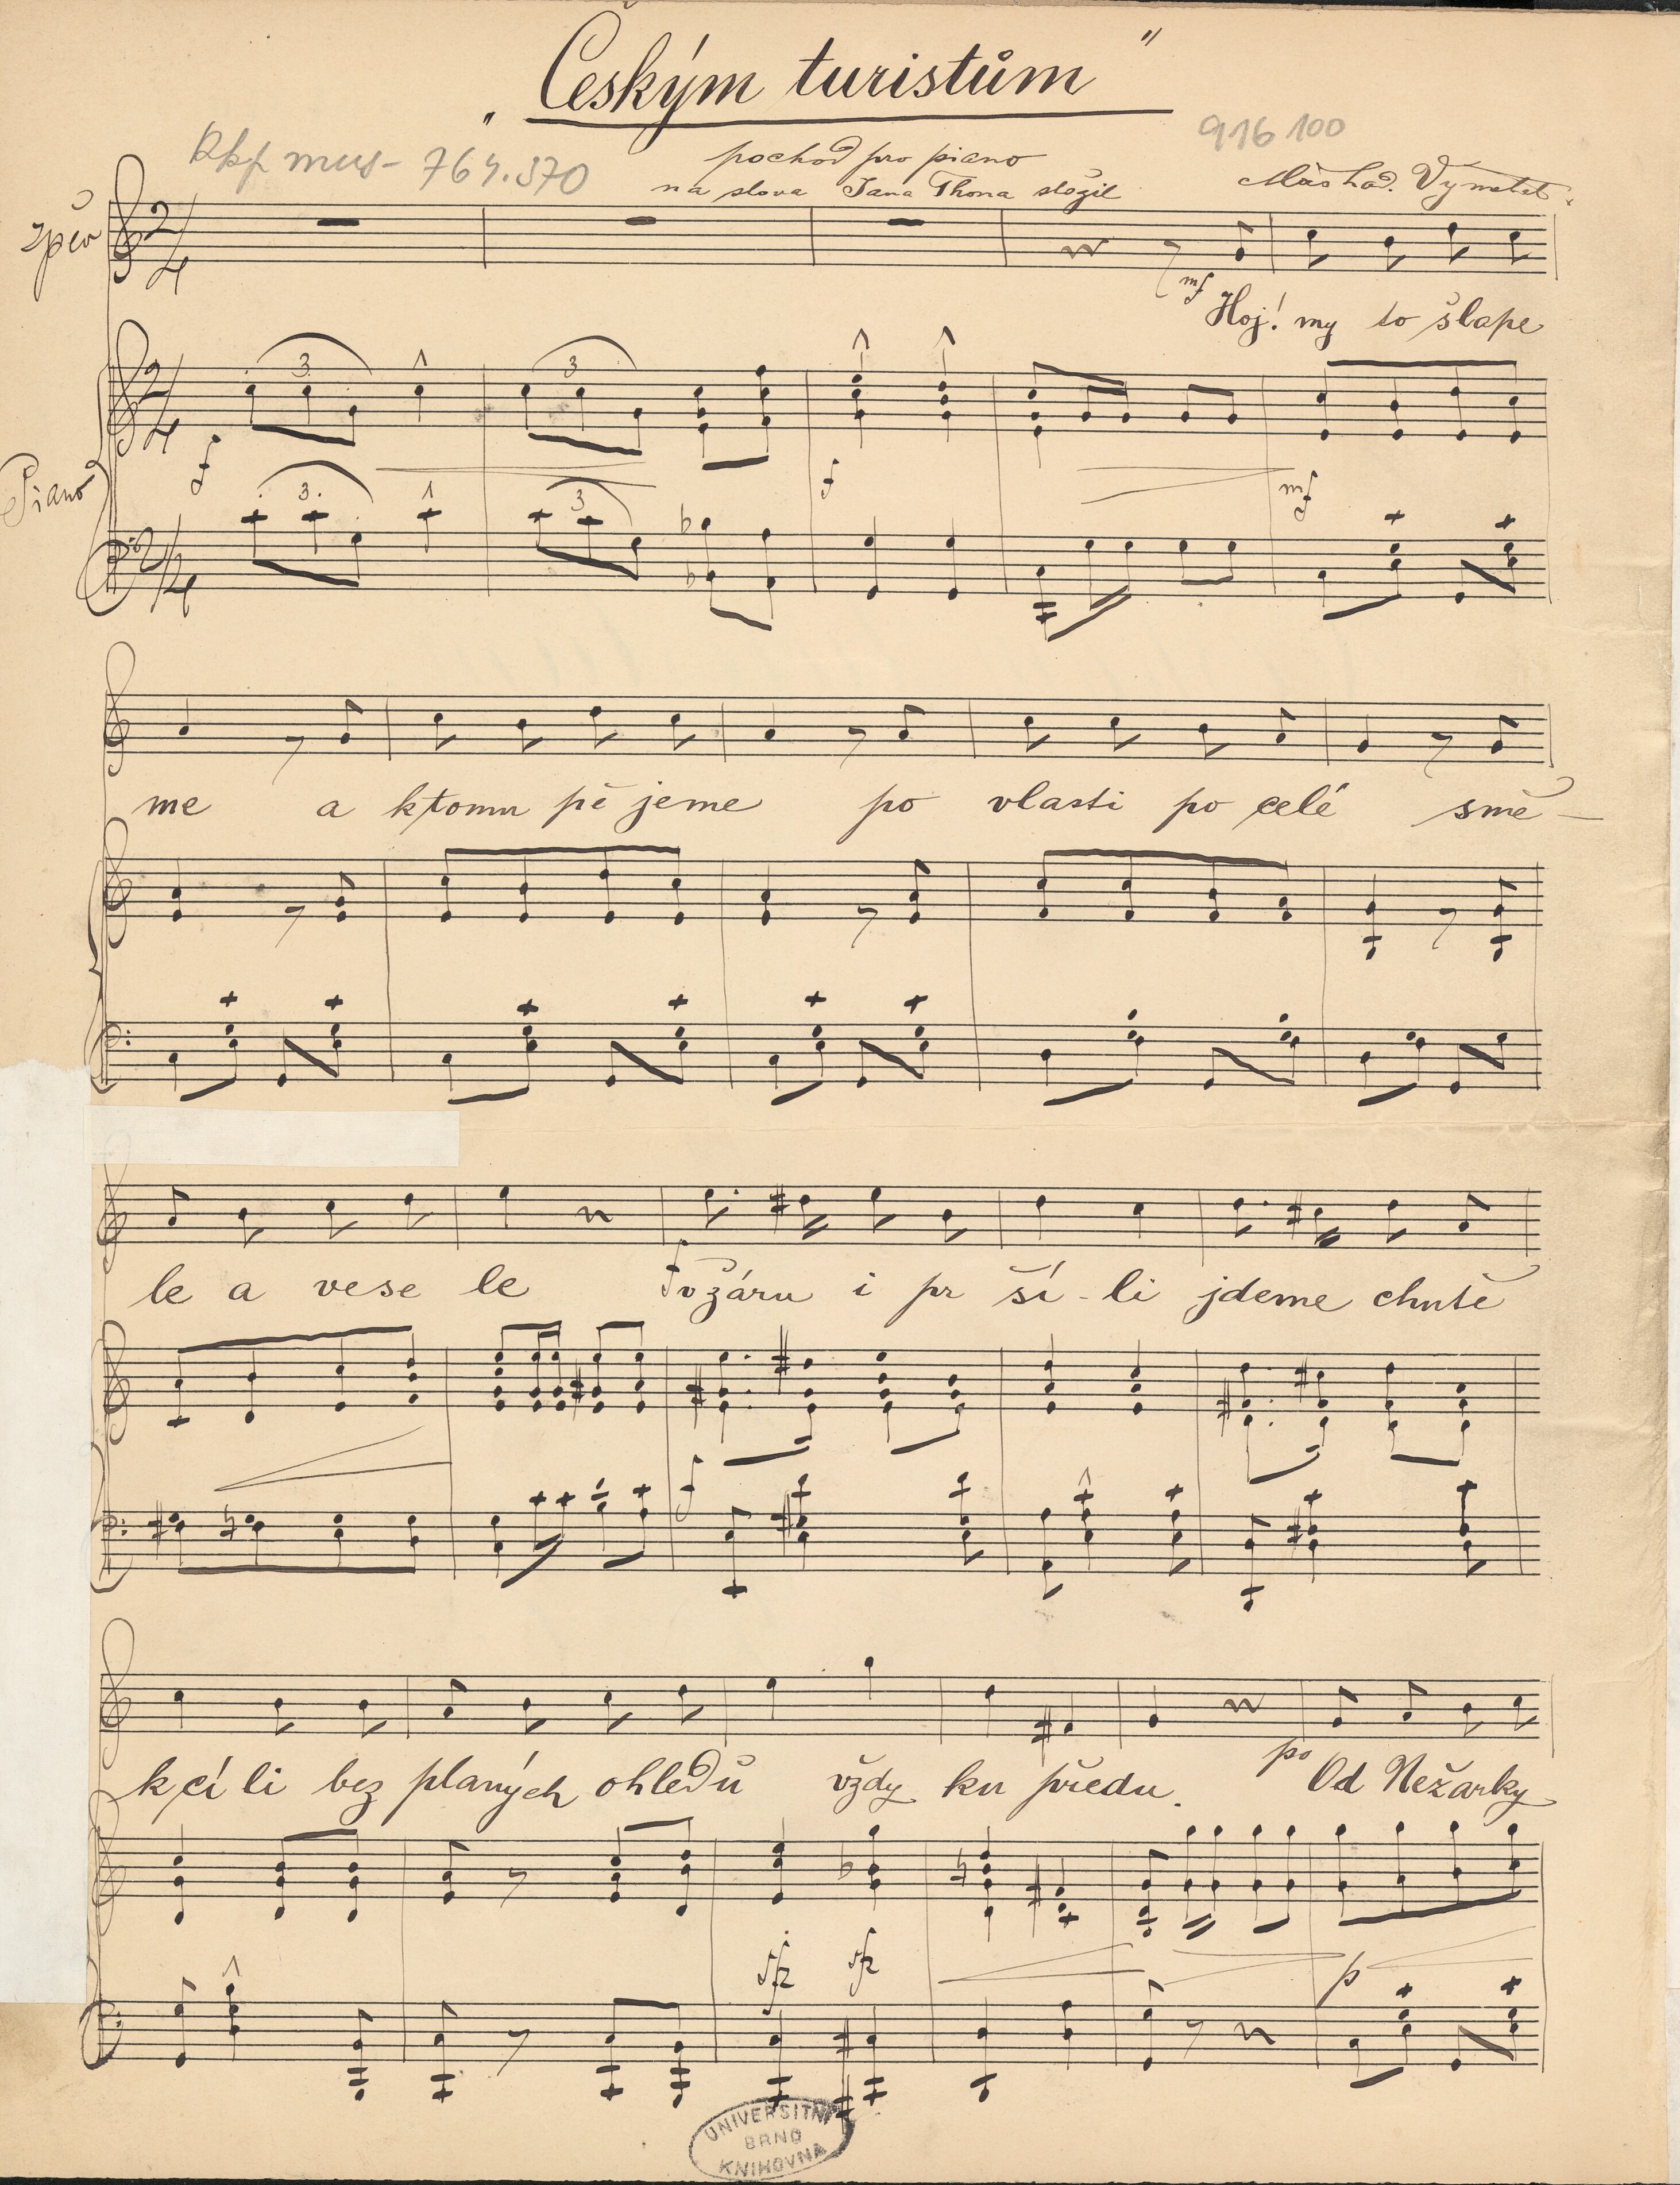 „Českým turistům"
Rkp mus- 764.370
916100
pochod pro piano
na slova Jana Thona složil
Lad. Vymetal.
zpěv
2/4
mf
Hoj! my to šlape
3 3
2/4
f f mf
Piano
3 3
2/4
me a ktomu pě jeme po vlasti po celé smě-
le a vese le f v žáru i pr ší-li jdeme chutě
f
k cí li bez planých ohledů vždy ku předu. po Od Nežarky
sfz sfz p
UNIVERSITNÍ
BRNO
KNIHOVNA